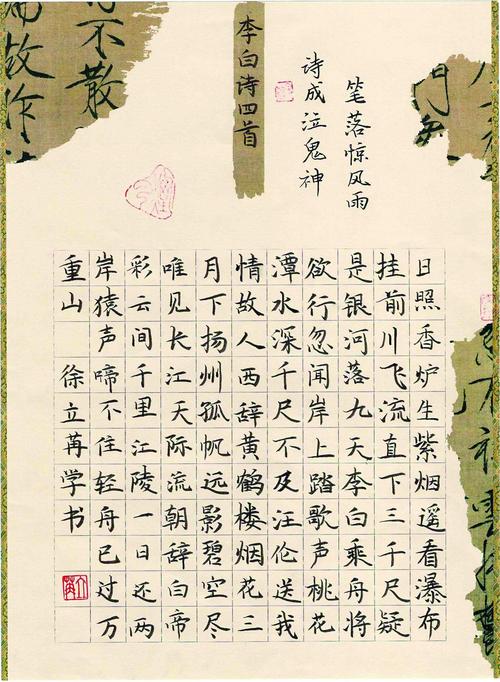 笔落惊风雨
诗成泣鬼神
李白诗四首
不散
故作
日照香炉生紫烟遥看瀑布
挂前川飞流直下三千尺疑
是银河落九天李白乘舟将
欲行忽闻岸上踏歌声桃花
潭水深千尺不及汪伦送我
情故人西辞黄鹤楼烟花三
月下扬州孤帆远影碧空尽
唯见长江天际流朝辞白帝
彩云间千里江陵一日还两
岸猿声啼不住轻舟已过万
重山 徐立苒学书